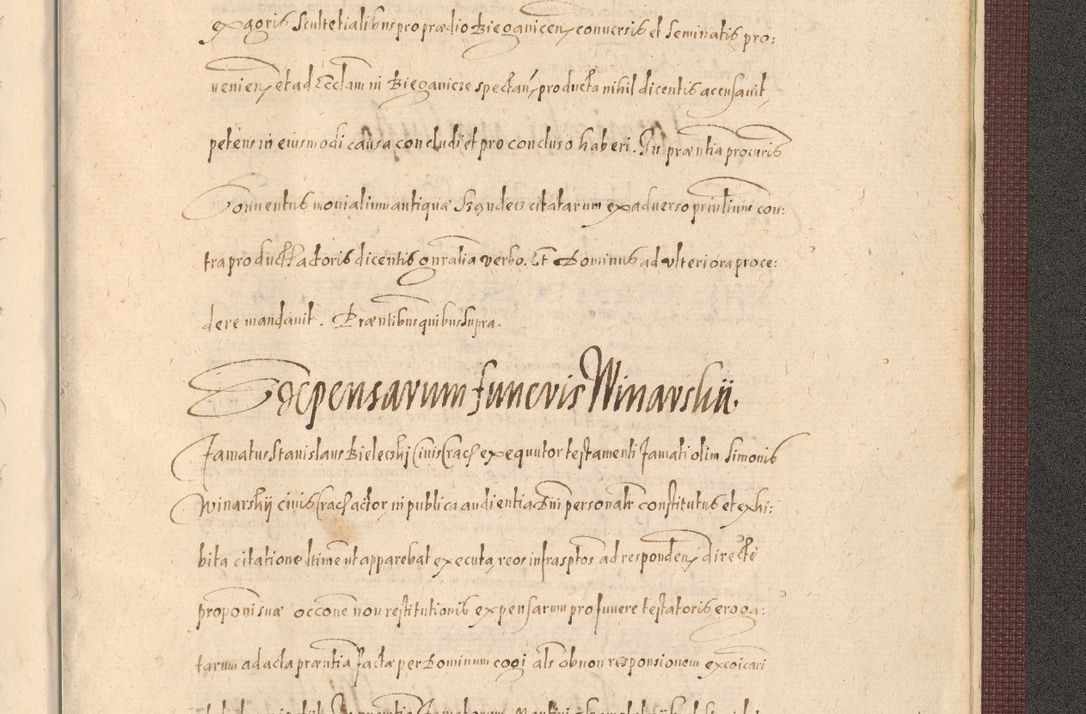 ex agris Scultetialibus pro prædio Bieganicen, conversis et seminatis pro:
venien, et ad Ecclam in Bieganicze spectan, producta nihil dicentis accusavit,
petens in eiusmodi causa concludi et pro concluso haberi. In præntia procuris
Conventus monialium antiquæ Sandecz citatarum ex adverso principalium con:
tra product actoris dicentis gnralia verbo. Et Dominus ad ulteriora proce:
dere mandavit. Præntibus quibus supra.
Expensarum funeris Winarskii.
Famatus Stanislaus Bieleczkj Civis Crach exequutor testamenti famati olim Simonis
Winarskij civis Crach actor in publica audientia Dni personalr constitutus et exhi:
bita citatione ut apparebat executa reos infrasptos ad responden, directe
proponi suæ occone non restitutionis expensarum pro funere testatoris eroga:
tarum ad acta præntia factæ per Dominum cogi als ob non responsionem excoicari